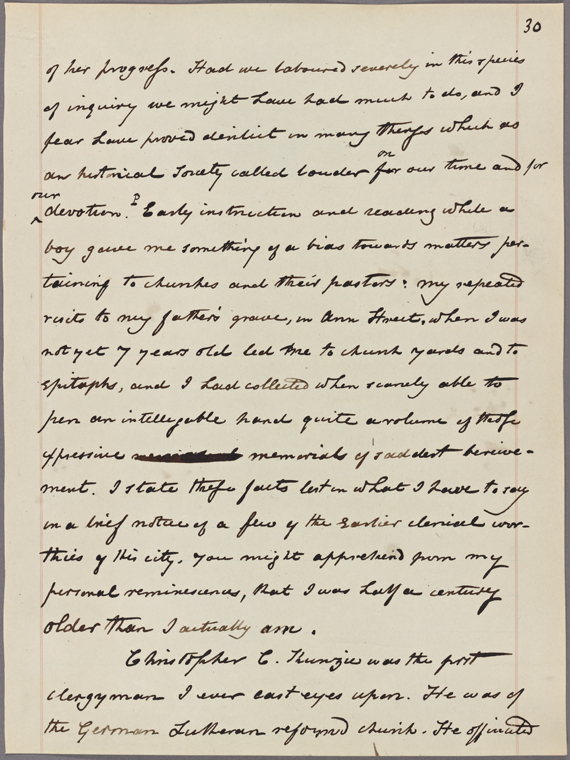 30
of her progress. Had we laboured severely in this species
of inquiry we might have had much to do, and I
fear have proved derilict in many theses which as
on
an historical Society called louder for our time and for
our
^ devotion. P Early instruction and reading while a
boy gave me something of a bias towards matters per-
taining to churches and their pastors: my repeated
visits to my father's grave, in Ann Street, when I was
not yet 7 years old led me to church yards and to
epitaphs, and I had collected when scarcely able to
pen an intellegable hand quite a volume of those
expressive memorials of saddest bereive-
ment. I state these facts lest in what I have to say
in a brief notice of a few of the Earlier clerical wor-
thies of this city. you might apprehend from my
personal reminescences, that I was half a century
older than I actually am.
Christopher C. Kunzie was the first
clergyman I ever cast eyes upon. He was of
the German Lutheran reform'd church. He officiated